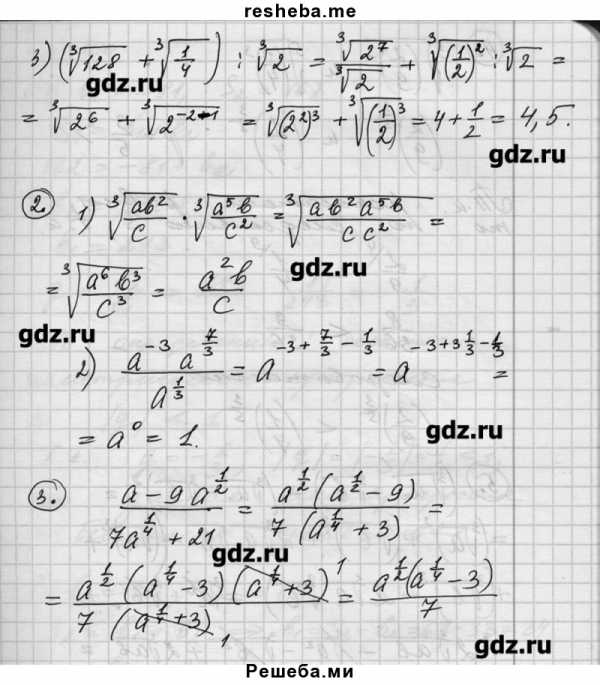 resheba.me
3) (∛128 + ∛(1/4)) : ∛2 = ∛2⁷/∛2 + ∛((1/2)²) : ∛2 =
gdz.ru
= ∛2⁶ + ∛(2^(-2-1)) = ∛((2²)³) + ∛((1/2)³) = 4 + 1/2 = 4,5.
gdz.ru
2. 1) ∛(ab²/c) · ∛(a⁵b/c²) = ∛(ab²a⁵b/(cc²)) =
gdz.ru
= ∛(a⁶b³/c³) = a²b/c
gdz.ru
2) (a^(-3) a^(7/3))/a^(1/3) = a^(-3 + 7/3 - 1/3) = a^(-3+3 1/3 - 1/3) =
= a⁰ = 1.
gdz.ru
3. (a - 9a^(1/2))/(7a^(1/4) + 21) = (a^(1/2)(a^(1/2) - 9))/(7(a^(1/4) + 3)) =
gdz.ru
= (a^(1/2)(a^(1/4) - 3)(a^(1/4) + 3)¹)/(7(a^(1/4) + 3)₁) = (a^(1/2)(a^(1/4) - 3))/7
gdz.ru
Решеба.ми